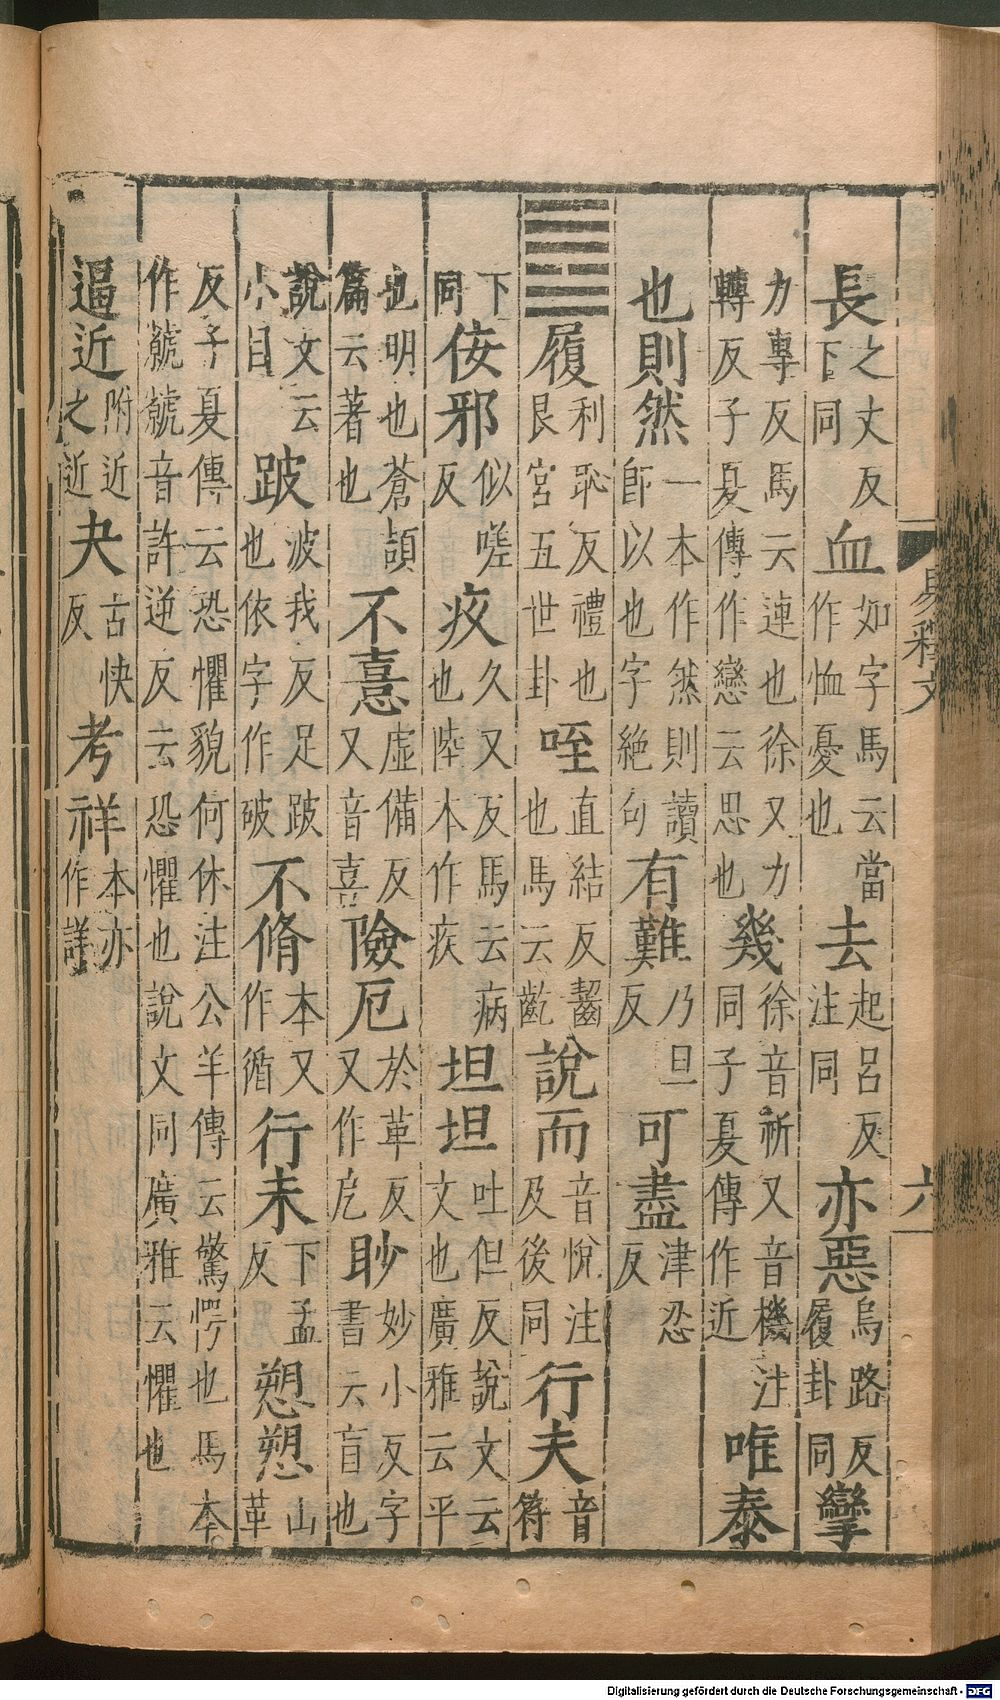 長之丈反下同血如字馬云當作恤憂也去起呂反注同亦惡烏路反履卦同攣
力專反馬云連也徐又力轉反子夏傳作戀云思也幾徐音祈又音機注同子夏傳作近唯泰
也則然一本作然則讀卽以也字絶句有難乃旦反可盡津忍反
履利恥反禮也艮宮五世卦咥直結反齧也馬云齕說而音悅注及後同行夫音符
下同佞邪似嗟反疚久又反馬云病也陸本作疾坦坦吐但反說文云文也廣雅云平
也明也蒼頡篇云著也不憙虛備反又音喜險厄於革反又作戹眇妙小反字書云盲也
說文云小目跛波我反足跛也依字作破不脩本又作循行未下孟反愬愬山革
反子夏傳云恐懼貌何休注公羊傳云驚愕也馬本作虩虩音許逆反云恐懼也說文同廣雅云懼也
逼近附近之近夬古快反考祥本亦作詳
易釋文
六
Digitalisierung gefördert durch die Deutsche Forschungsgemeinschaft - DFG